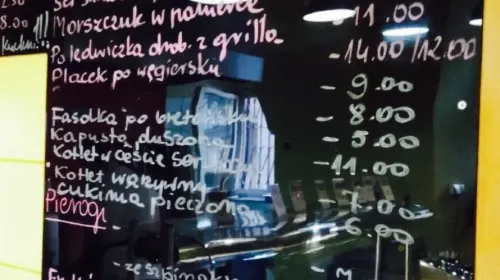 8.00
Morszczuk w panierce - 11.00
Polędwiczka drob. z grilla - 14.00/12.00
Placek po węgiersku
- 9.00
Fasolka po bretońsku - 8.00
Kapusta duszona - 5.00
Kotlet w cieście ser - 11.00
Kotlet warzywny
cukinia pieczona - 7.00
Pierogi 6.00
- ze szpinakiem